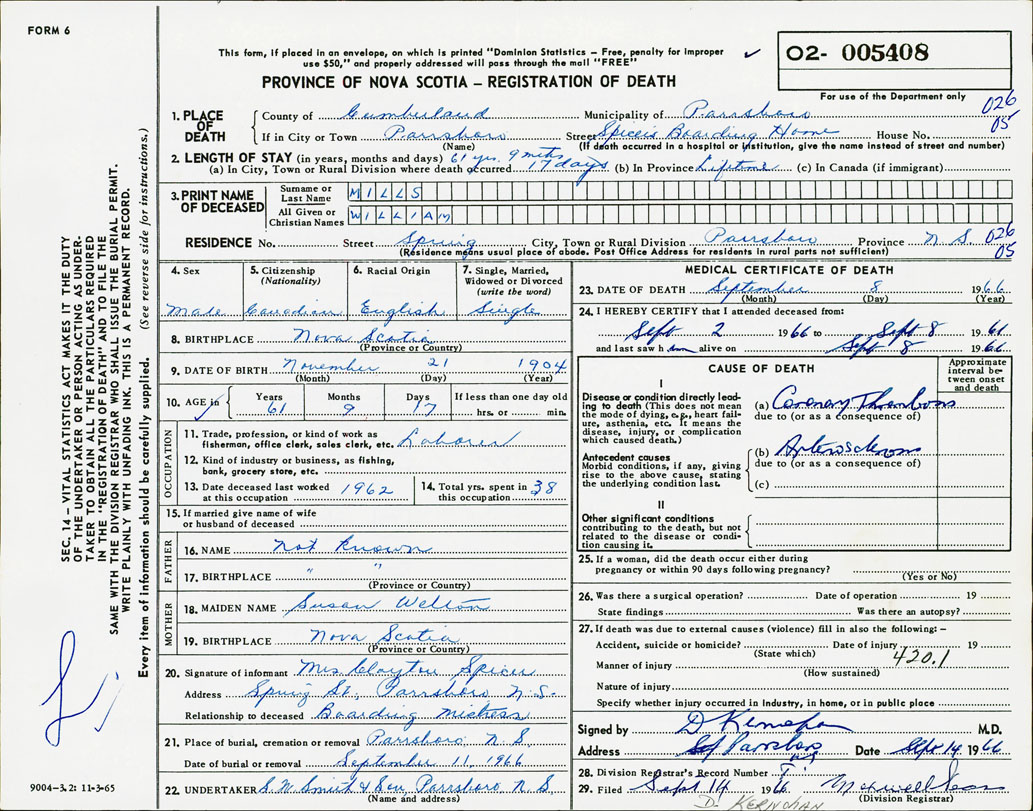 FORM 6
This form, if placed in an envelope, on which is printed "Dominion Statistics – Free, penalty for improper
use $50," and properly addressed will pass through the mail "FREE"
O2- 005408
For use of the Department only
PROVINCE OF NOVA SCOTIA – REGISTRATION OF DEATH
026
05
1. PLACE OF DEATH
County of Cumberland Municipality of Parrsboro
If in City or Town Parrsboro Street Spicers Boarding Home House No.
(Name) (If death occurred in a hospital or institution, give the name instead of street and number)
2. LENGTH OF STAY (in years, months and days) 61 yrs. 9 mths
(a) In City, Town or Rural Division where death occurred 17 days (b) In Province Lifetime (c) In Canada (if immigrant)
3. PRINT NAME OF DECEASED
Surname or Last Name MILLS
All Given or Christian Names WILLIAM
RESIDENCE No. Street Spring City, Town or Rural Division Parrsboro Province N S. 026
05
(Residence means usual place of abode. Post Office Address for residents in rural parts not sufficient)
4. Sex
Male
5. Citizenship
(Nationality)
Canadian
6. Racial Origin
English
7. Single, Married,
Widowed or Divorced
(write the word)
Single
8. BIRTHPLACE Nova Scotia
(Province or Country)
9. DATE OF BIRTH November 21 1904
(Month) (Day) (Year)
10. AGE in Years Months Days If less than one day old
61 9 17 hrs. or min.
OCCUPATION
11. Trade, profession, or kind of work as
fisherman, office clerk, sales clerk, etc. Laborer
12. Kind of industry or business, as fishing,
bank, grocery store, etc.
13. Date deceased last worked
at this occupation 1962
14. Total yrs. spent in
this occupation 38
15. If married give name of wife
or husband of deceased
FATHER
16. NAME not known
17. BIRTHPLACE " "
(Province or Country)
MOTHER
18. MAIDEN NAME Susan Welton
19. BIRTHPLACE Nova Scotia
(Province or Country)
20. Signature of informant Mrs. Clayton Spicer
Address Spring St. Parrsboro N.S.
Relationship to deceased Boarding mistress
21. Place of burial, cremation or removal Parrsboro, N.S.
Date of burial or removal September 11, 1966
22. UNDERTAKER Smith & Son, Parrsboro N.S.
(Name and address)
MEDICAL CERTIFICATE OF DEATH
23. DATE OF DEATH September 8 1966
(Month) (Day) (Year)
24. I HEREBY CERTIFY that I attended deceased from:
Sept 2 1966 to Sept 8 1966
and last saw him alive on Sept 8 1966
CAUSE OF DEATH
Approximate
interval be-
tween onset
and death
I
Disease or condition directly lead-
ing to death (This does not mean
the mode of dying, e.g., heart fail-
ure, asthenia, etc. It means the
disease, injury, or complication
which caused death.)
(a) Coronary Thrombosis
due to (or as a consequence of)
Antecedent causes
Morbid conditions, if any, giving
rise to the above cause, stating
the underlying condition last.
(b) Arteriosclerosis
due to (or as a consequence of)
(c)
II
Other significant conditions
contributing to the death, but not
related to the disease or condi-
tion causing it.
25. If a woman, did the death occur either during
pregnancy or within 90 days following pregnancy?
(Yes or No)
26. Was there a surgical operation? Date of operation 19
State findings Was there an autopsy?
27. If death was due to external causes (violence) fill in also the following: –
Accident, suicide or homicide? Date of injury 19
(State which) 420.1
Manner of injury
(How sustained)
Nature of injury
Specify whether injury occurred in Industry, in home, or in public place
Signed by D Kernohan M.D.
Address Parrsboro Date Sept 14 1966
28. Division Registrar's Record Number
29. Filed Sept 14 1966
(Division Registrar)
D. KERNOHAN
SEC. 14 – VITAL STATISTICS ACT MAKES IT THE DUTY
OF THE UNDERTAKER OR PERSON ACTING AS UNDER-
TAKER TO OBTAIN ALL THE PARTICULARS REQUIRED
IN THE "REGISTRATION OF DEATH" AND TO FILE THE
SAME WITH THE DIVISION REGISTRAR WHO SHALL ISSUE THE BURIAL PERMIT.
WRITE PLAINLY WITH UNFADING INK. THIS IS A PERMANENT RECORD.
Every item of information should be carefully supplied. (See reverse side for instructions.)
9004-3.2: 11-3-65